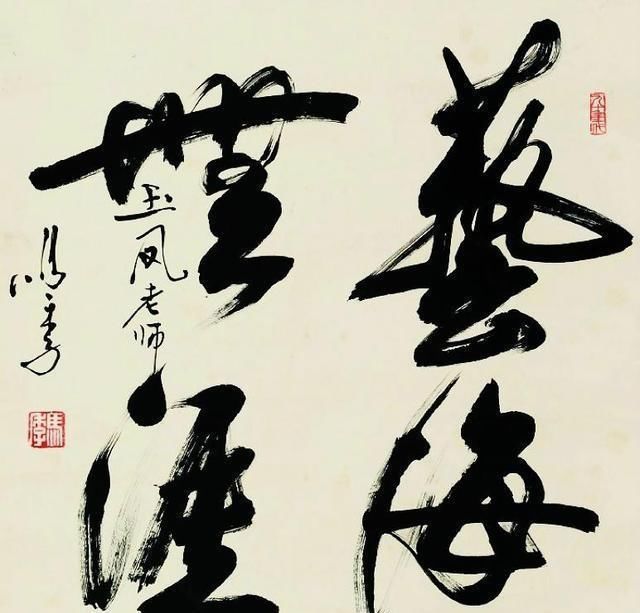 藝海
無涯
玉凤老师
馬季